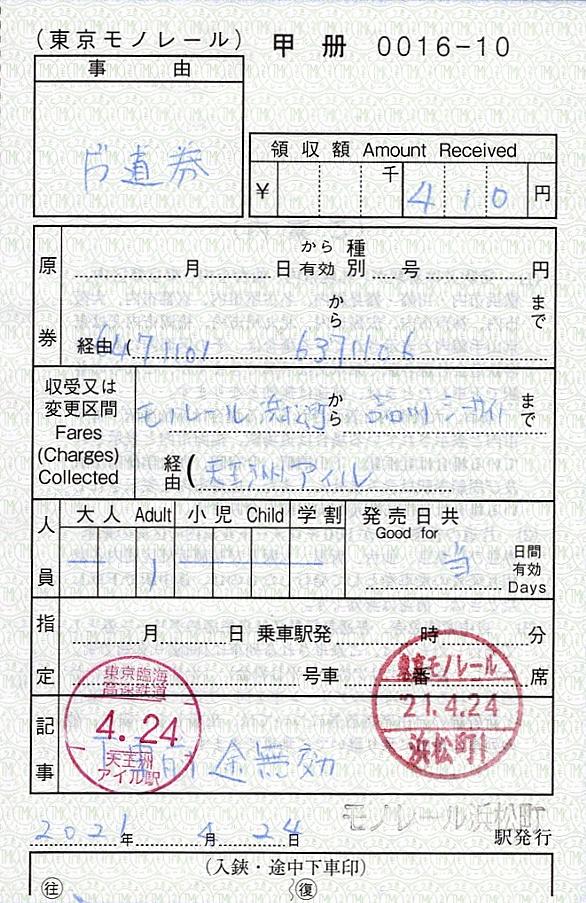 (東京モノレール) 甲 册 0016-10
事由
片道券
領収額 Amount Received
¥ 千 410 円
原券
月 日 から有効 種別 号 円
から まで
経由 (
6371106
収受又は
変更区間
Fares
(Charges)
Collected
モノレール 浜松町 から 品川シーサイド まで
経由 (天王洲アイル
人員
大人 Adult 小児 Child 学割
1
発売日共
Good for
当
日間
有効
Days
指定
月 日 乗車駅発 時 分
号車 番 席
記事
途無効
東京臨海
高速鉄道
4.24
天王洲
アイル駅
東京モノレール
'21.4.24
浜松町1
モノレール浜松町
2021年 4月 24日
駅発行
(入鋏・途中下車印)
往 復